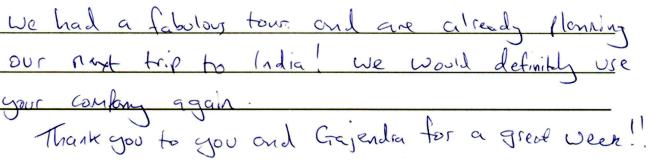 we had a fabulous tour and are already planning
our next trip to India! we would definitly use
your company again.
Thank you to you and Gajendra for a great week!!